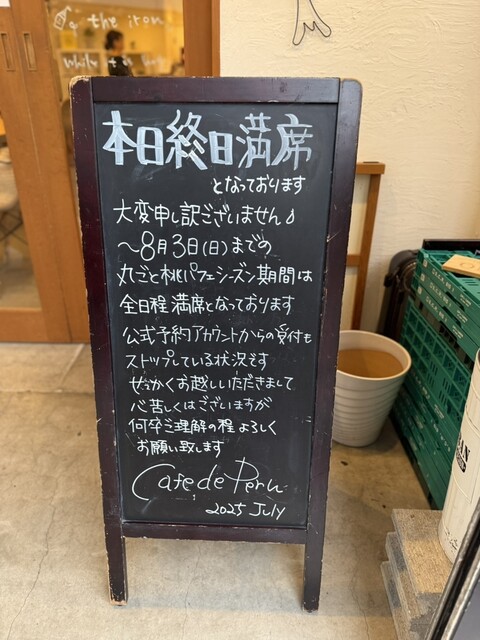 the iron
while it is
本日終日満席
となっております
大変申し訳ございません
〜8月3日(日)までの
丸ごと桃パフェシーズン期間は
全日程満席となっております
公式予約アカウントからの受付も
ストップしている状況です
せっかくお越しいただきまして
心苦しくはございますが
何卒ご理解の程よろしく
お願い致します
Cafe de Peru
2025 July